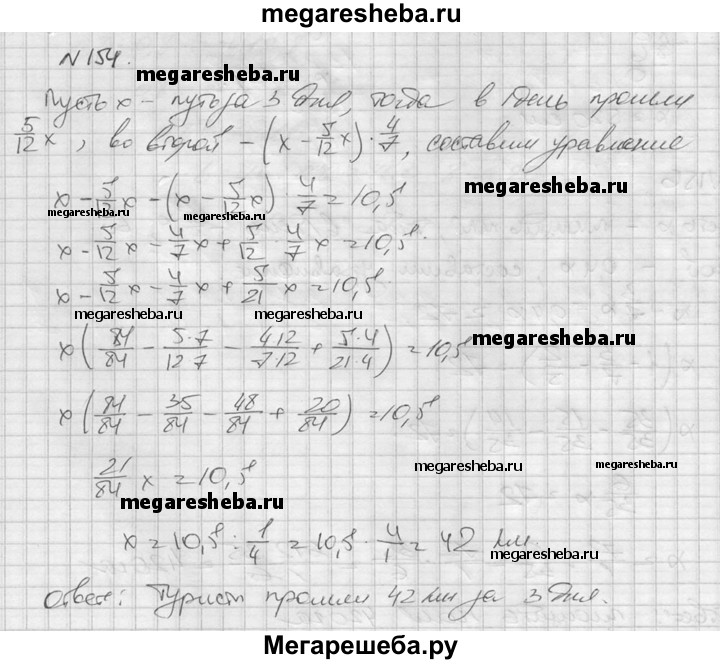 megaresheba.ru
N 154.
megaresheba.ru
Пусть x – путь за 3 дня, тогда в 1 день прошли
5/12 x, во второй – (x - 5/12 x) · 4/7, составим уравнение
x - 5/12 x - (x - 5/12 x) 4/7 = 10,5
megaresheba.ru
megaresheba.ru
x - 5/12 x - 4/7 x + 5/12 · 4/7 x = 10,5.
x - 5/12 x - 4/7 x + 5/21 x = 10,5.
megaresheba.ru megaresheba.ru
megaresheba.ru
x (84/84 - 5·7/12·7 - 4·12/7·12 + 5·4/21·4) = 10,5
x (84/84 - 35/84 - 48/84 + 20/84) = 10,5
21/84 x = 10,5
megaresheba.ru
megaresheba.ru
megaresheba.ru
x = 10,5 : 1/4 = 10,5 · 4/1 = 42 км.
megaresheba.ru
Ответ: Турист прошли 42 км за 3 дня.
Мегарешеба.ру